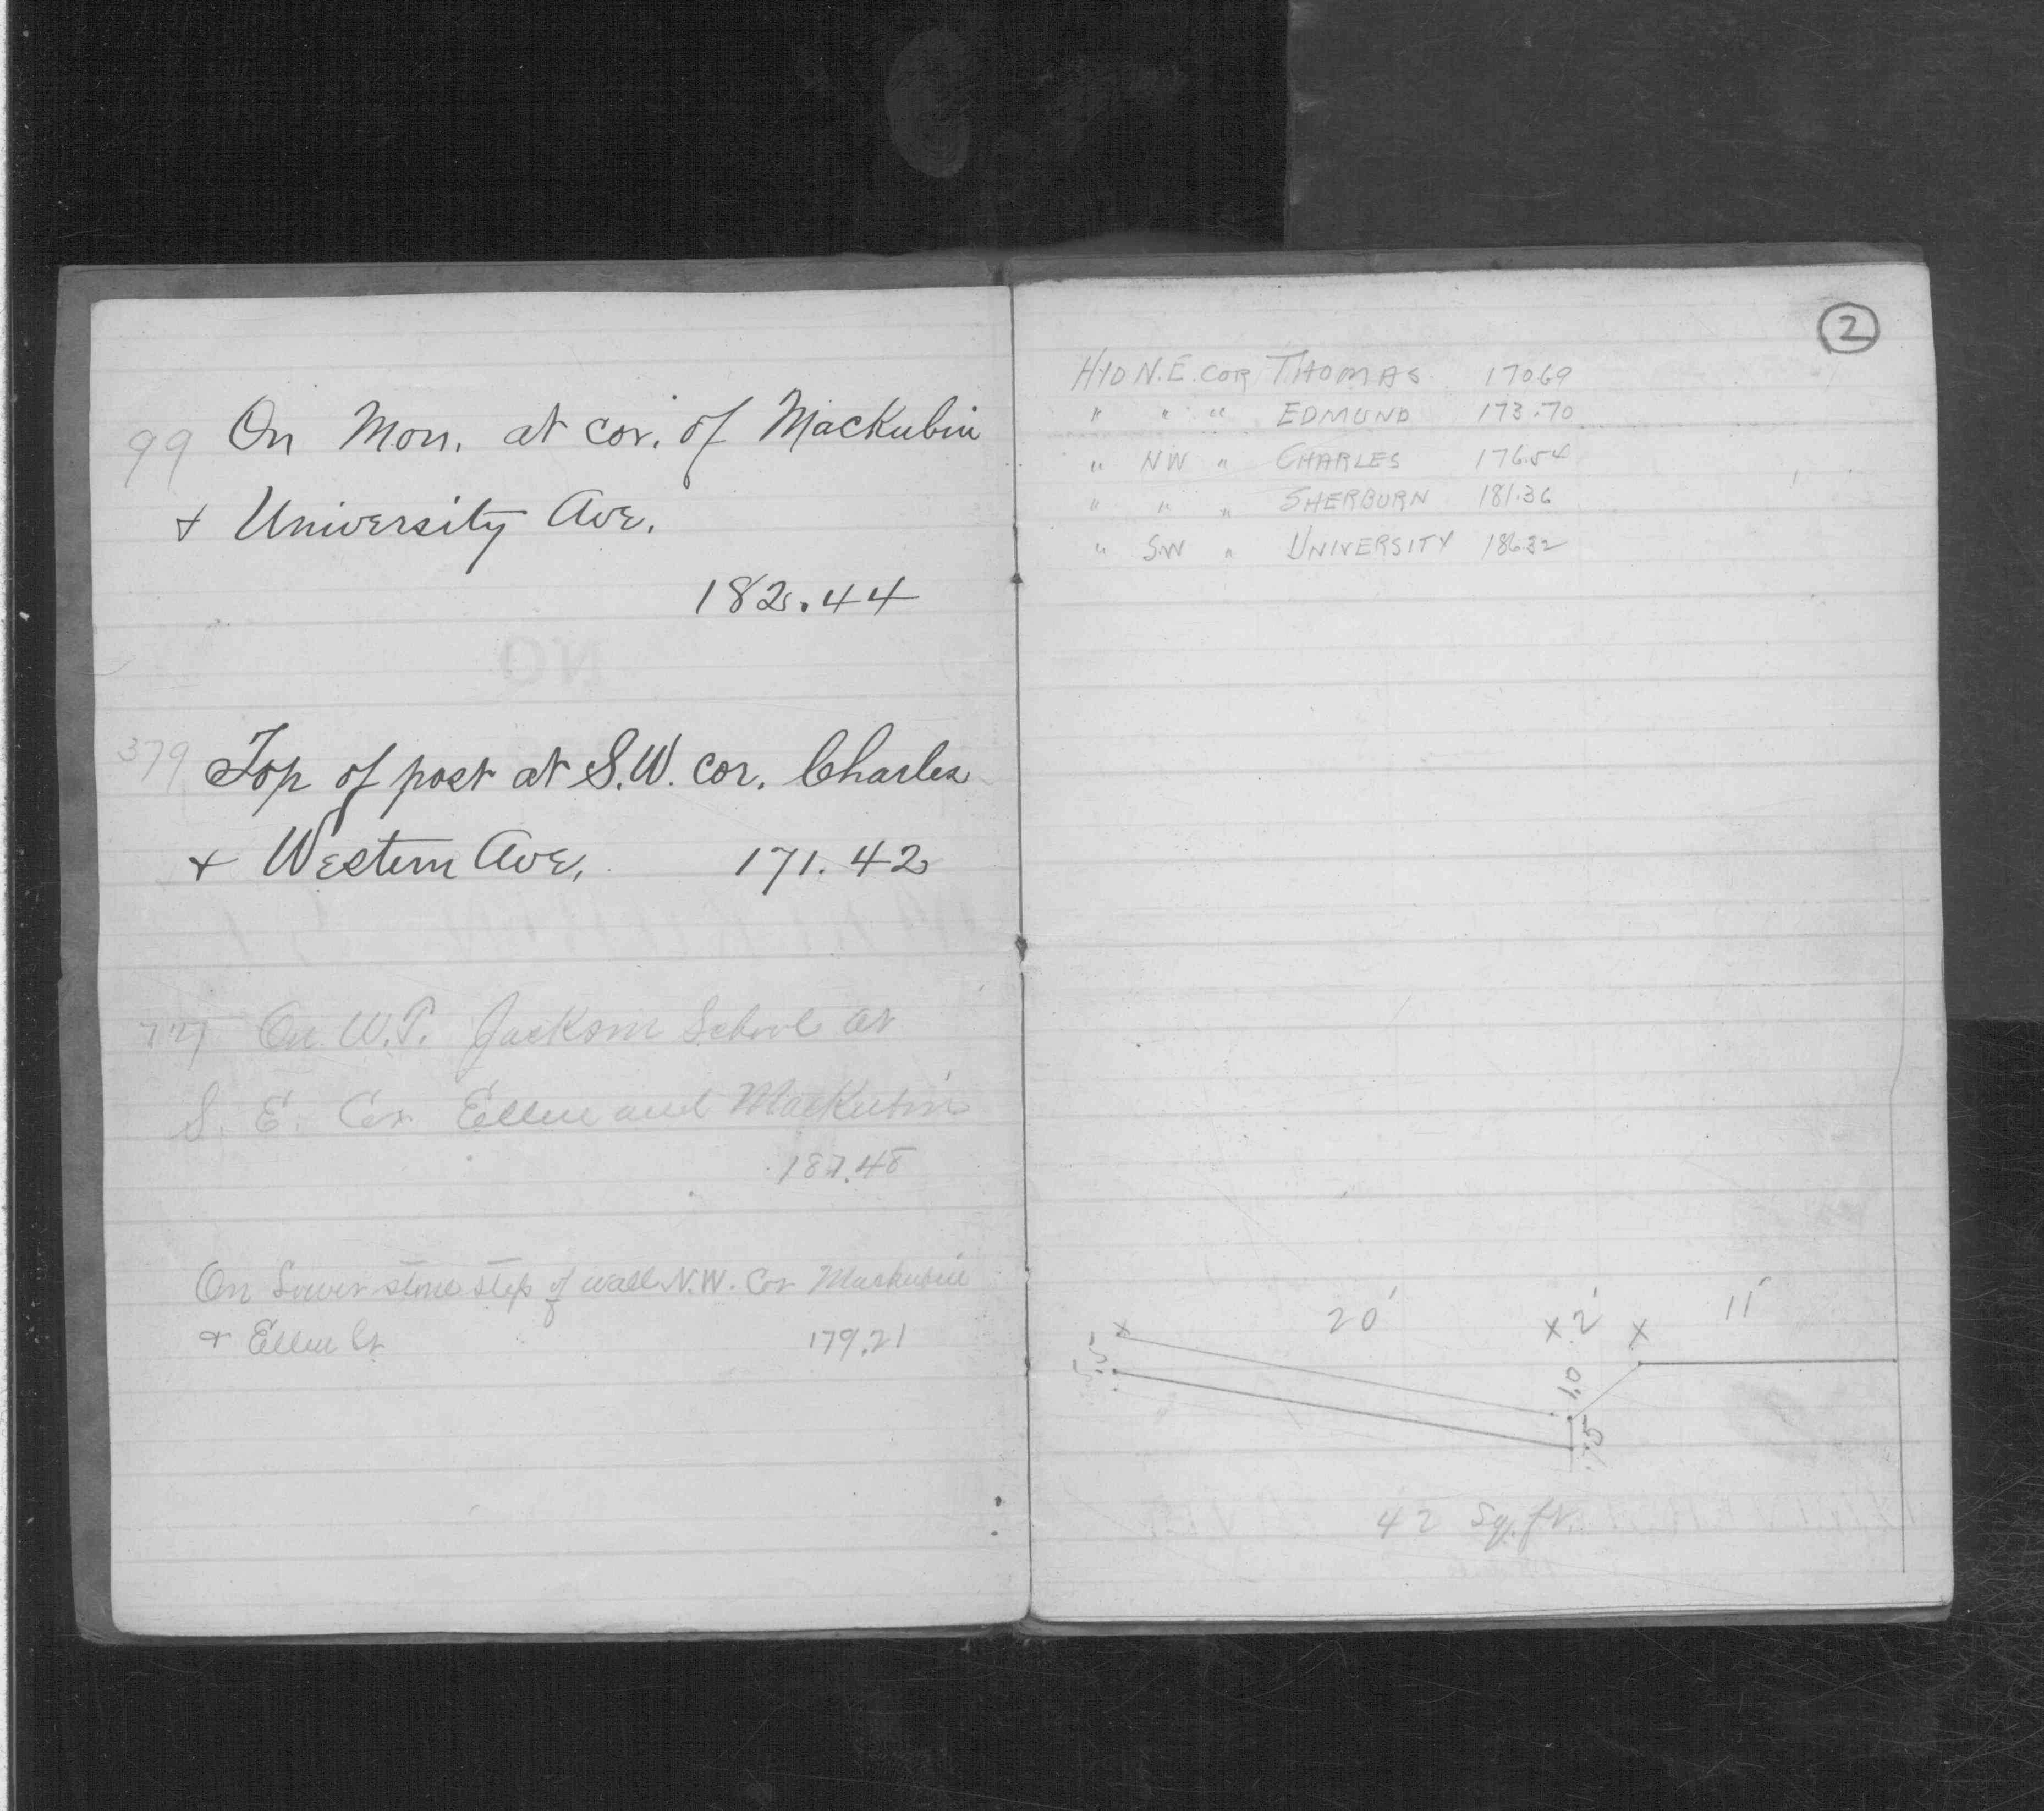 99 On Mon. at cor. of Mackubin
& University Ave.
182.44
379 Top of post at S.W. cor. Charles
& Western Ave. 171.42
On W.T. Jackson School at
S. E. Cor. Ellen and Mackubin
187.48
On Lower stone step of wall N.W. Cor Mackubin
& Ellen St 179.21
2
HYD N.E. COR THOMAS 170.69
" " " EDMUND 173.70
" NW " CHARLES 176.54
" " " SHERBURN 181.36
" S.W " UNIVERSITY 186.32
x 20' x 2' x 11'
.5
1.0
.75
42 Sq. ft.